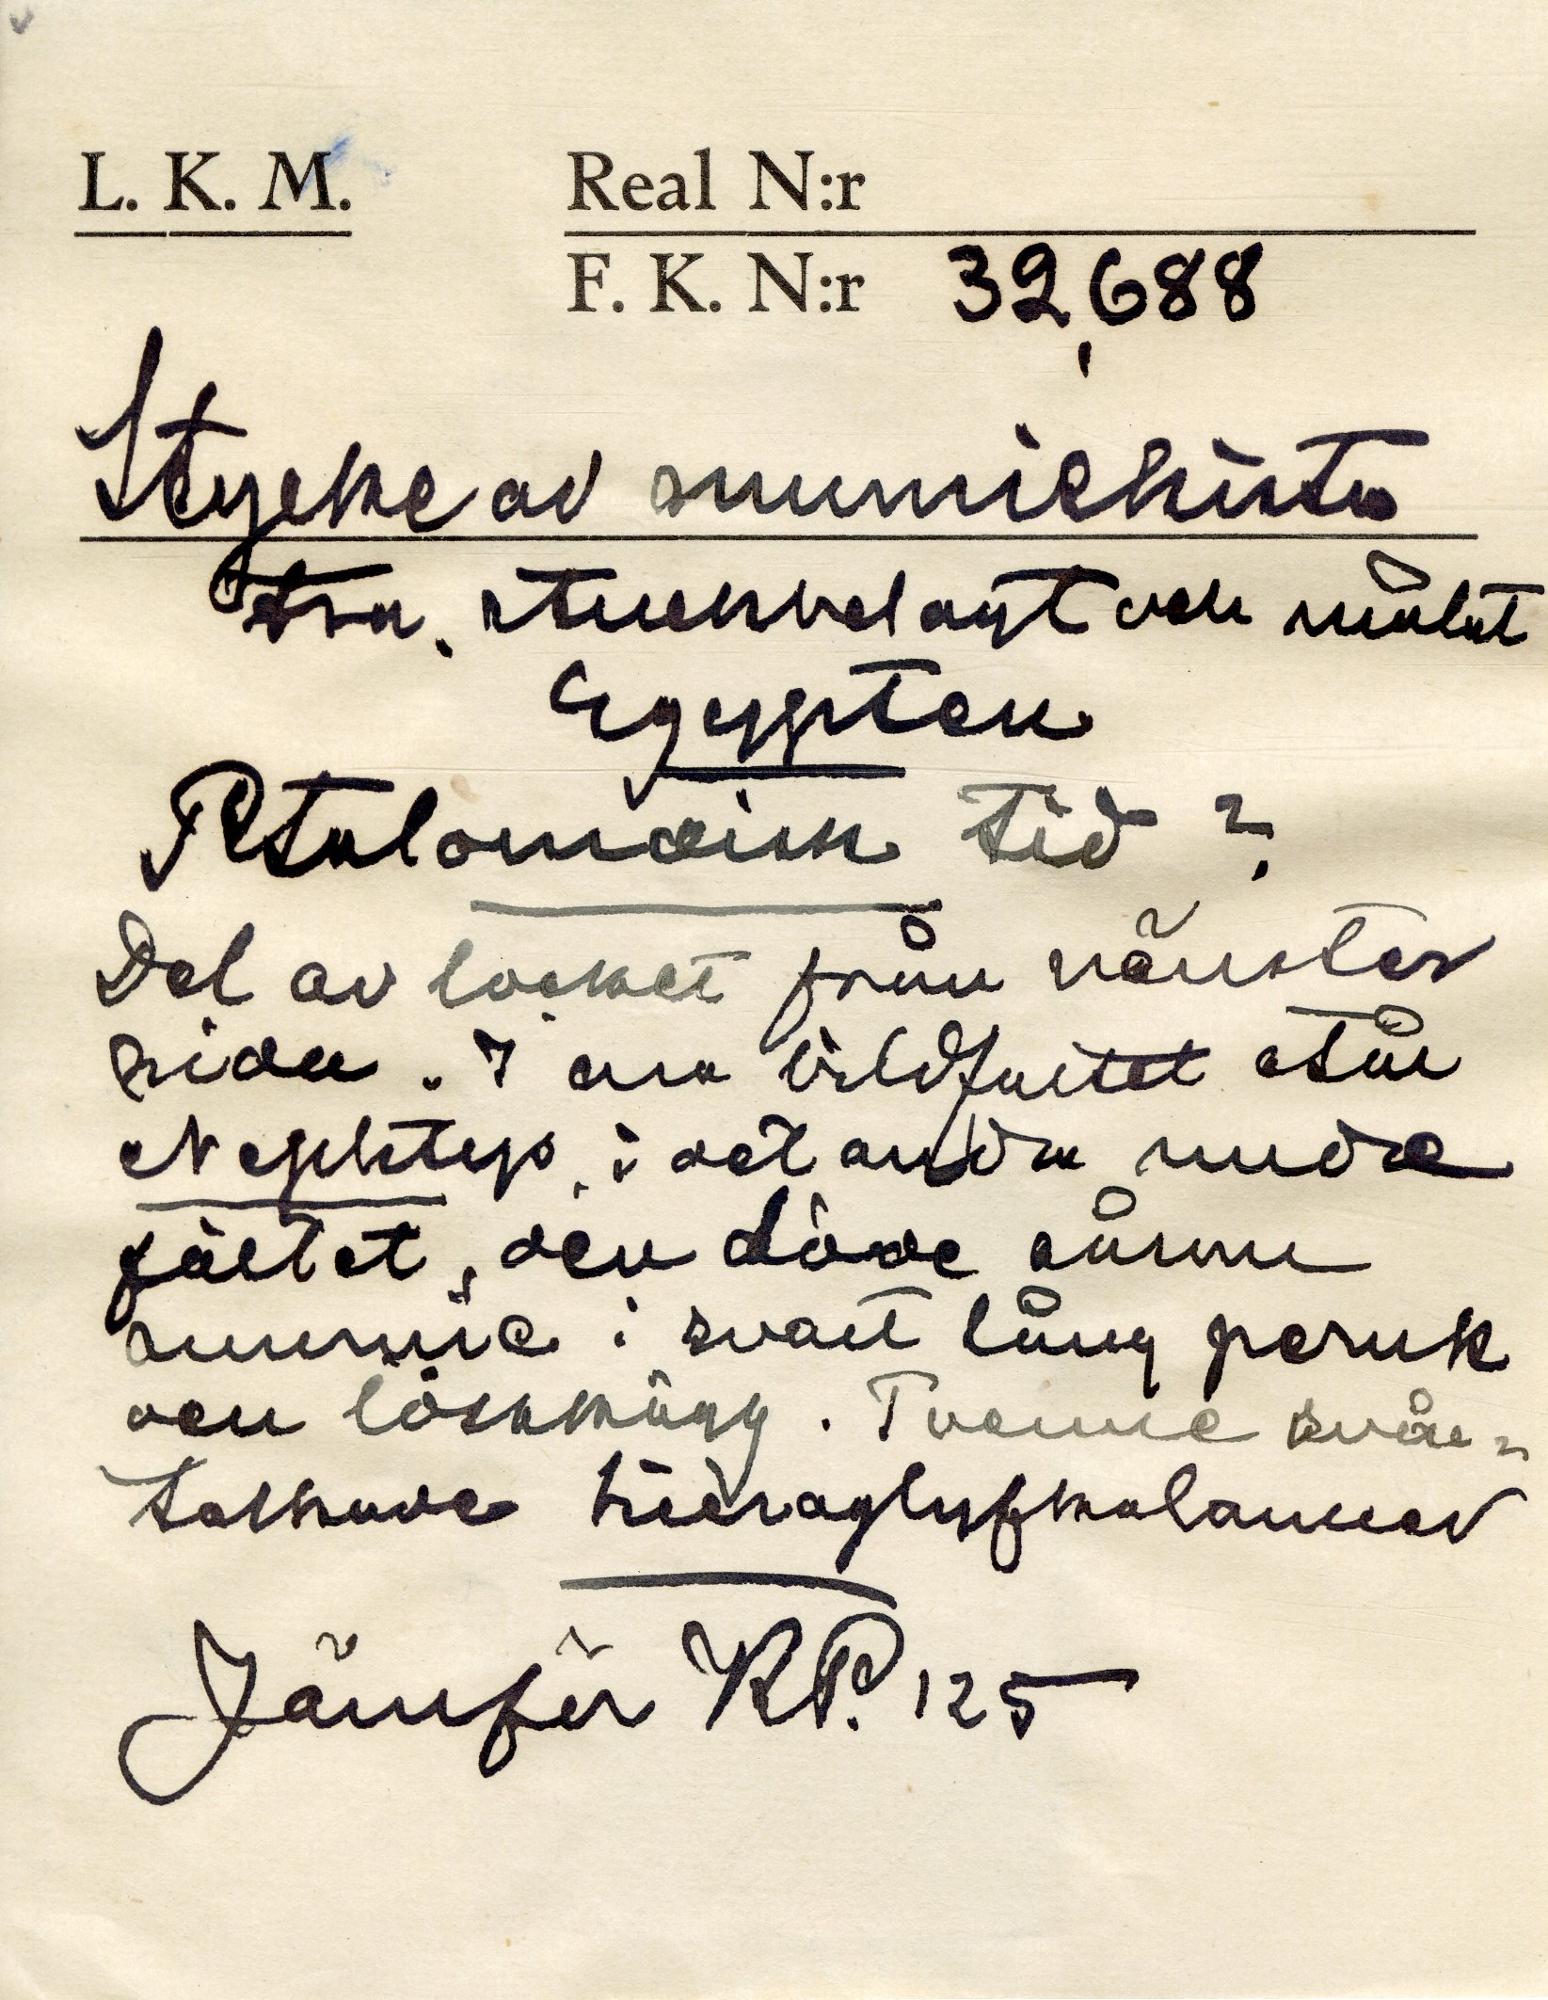 L. K. M. Real N:r
F. K. N:r 32,688
Stycke av mumiekista
trä. stuckbelagt och målat
Egypten
Ptolomäisk tid?
Del av locket från vänster
sida. I ena bildfältet står
Nephtys, i det andra nedre
fältet, den döde såsom
mumie i svart lång peruk
och lösskägg. Tvenne svår-
tolkade hieroglyfkolumner
Jämför KP. 125